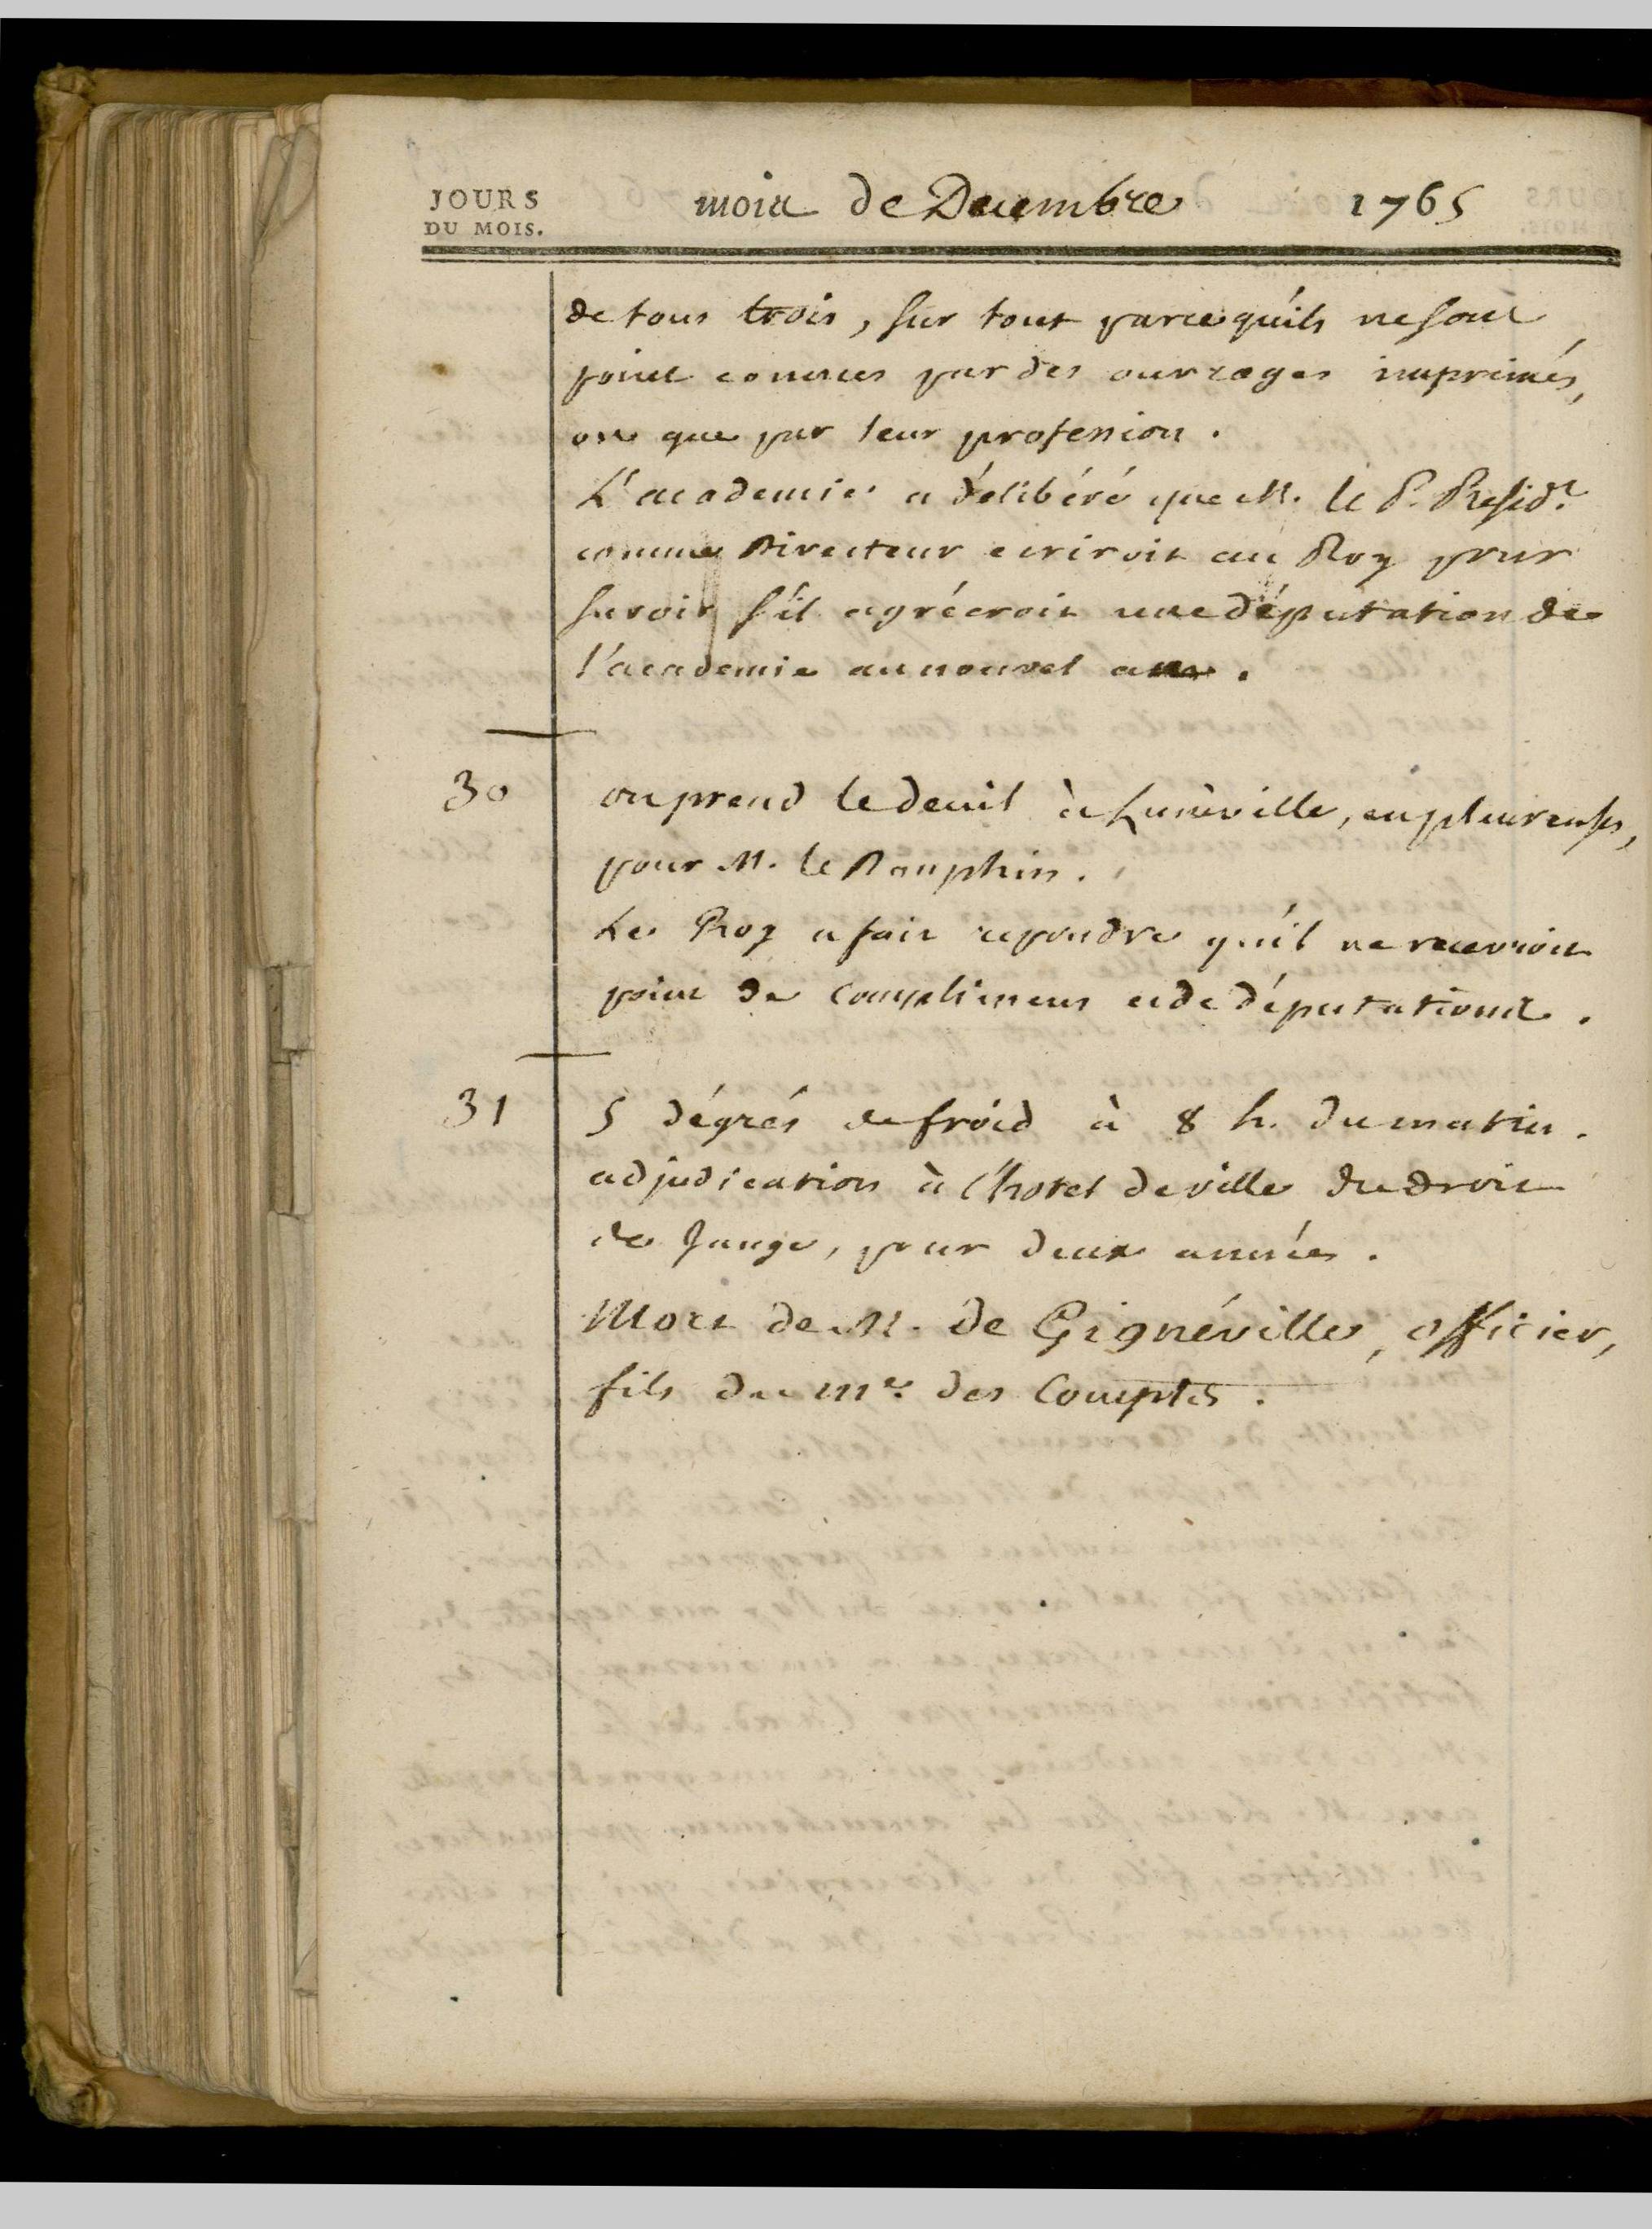 JOURS
DU MOIS.
mois de Decembre 1765
de tous trois, sur tout parce qu'ils ne sont
point connus par des ouvrages imprimés,
que par leur profession.
L'academie a délibéré que M. le P. Presidt
comme Directeur ecriroit au Roy pour
savoir s'il agréeroit une députation de
l'academie au nouvel an.
30
on prend le deuil à Lunéville, en pleureuses,
pour M. le Dauphin.
Le Roy a fait repondre qu'il ne recevroit
point de complimens et de députations.
31
5 dégrés de froid à 8 h. du matin.
adjudication à l'hotel de ville du droit
de Jauge, pour deux années.
Mort de M. de Gignéville, officier,
fils du me. des Comptes.